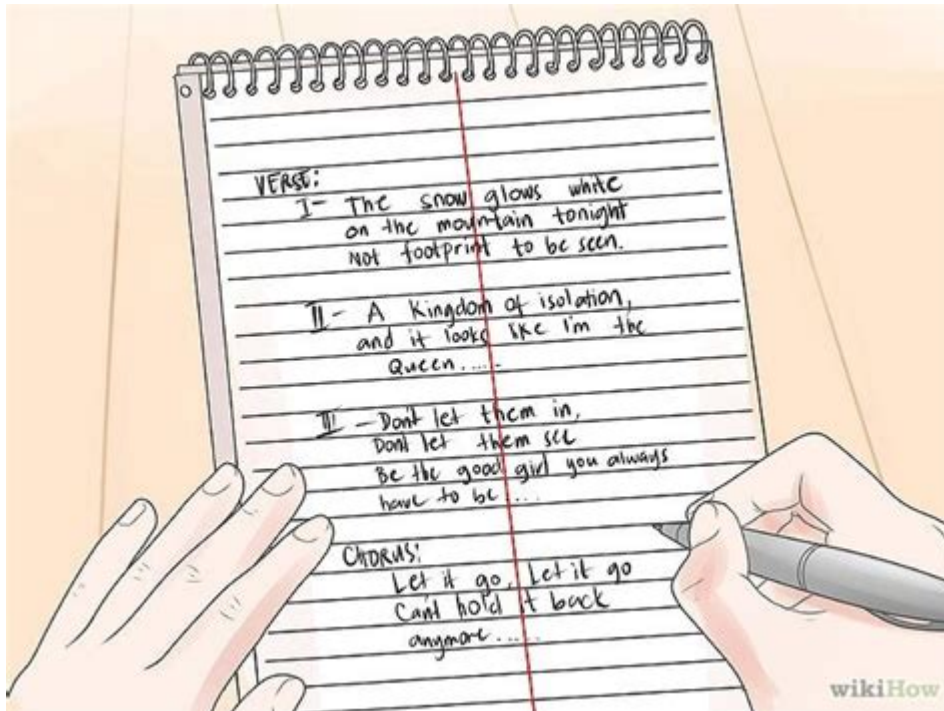 VERSE:
I- The snow glows white
on the mountain tonight
Not footprint to be seen.
II- A Kingdom of isolation,
and it looks like I'm the
Queen.....
III - Don't let them in,
Dont let them see
Be the good girl you always
have to be....
CHORUS:
Let it go, Let it go
Can't hold it back
anymore.....
wikiHow